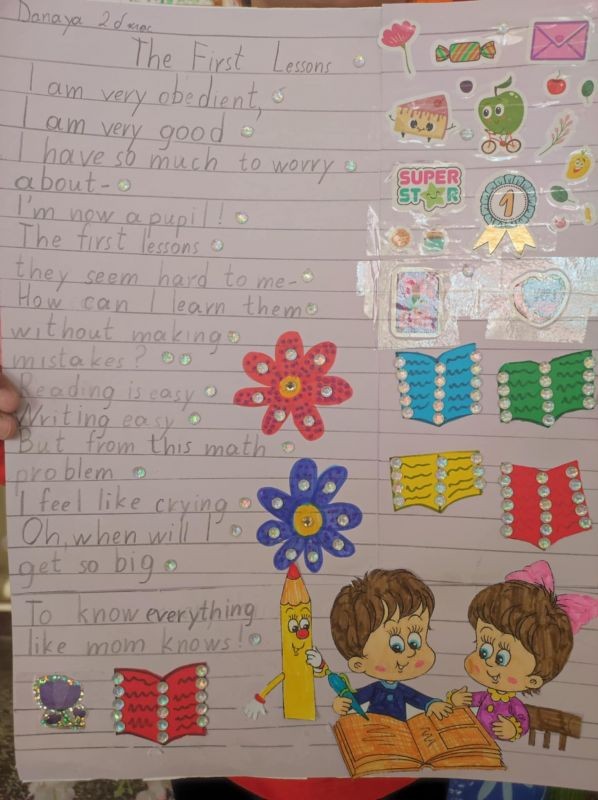 Danaya 2d класс
The First Lessons
I am very obedient,
I am very good
I have so much to worry
about-
I'm now a pupil!
The first lessons
they seem hard to me-
How can I learn them
without making
mistakes?
Reading is easy
Writing easy
But from this math
problem
I feel like crying
Oh, when will I
get so big
To know everything
like mom knows!
SUPER
STAR
1